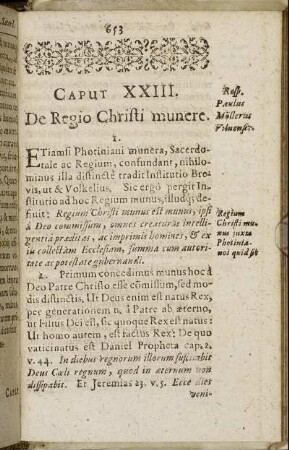 653
CAPUT XXIII.
De Regio Christi munere.
Resp.
Paulus
Müllerus
1.
ETiamsi Photiniani munera, Sacerdo-
tale ac Regium, confundant, nihilo-
minus illa distinctè tradit Institutio Bre-
vis, ut & Volkelius. Sic ergò pergit In-
stitutio ad hoc Regium munus, illudq; de-
finit: Regium Christi munus est munus, ipsi
à Deo commissum, omnes creaturas intelli-
gentiâ præditas, ac imprimis homines, & ex
iis collectam Ecclesiam, summa cum autori-
tate ac potestate gubernandi.
Regium
Christi mu-
nus juxta
Photinia-
nos quid sit
2. Primum concedimus munus hoc à
Deo Patre Christo esse cõmissum, sed mo-
dis distinctis. Ut Deus enim est natus Rex,
per generationem n. à Patre ab æterno,
ut Filius Dei est, sic quoque Rex est natus:
Ut homo autem, est factus Rex: De quo
vaticinatus est Daniel Propheta cap. 2.
v. 44. In diebus regnorum illorum suscitabit
Deus Cœli regnum, quod in æternum non
dissipabit. Et Jeremias 23. v. 5. Ecce dies
veni-